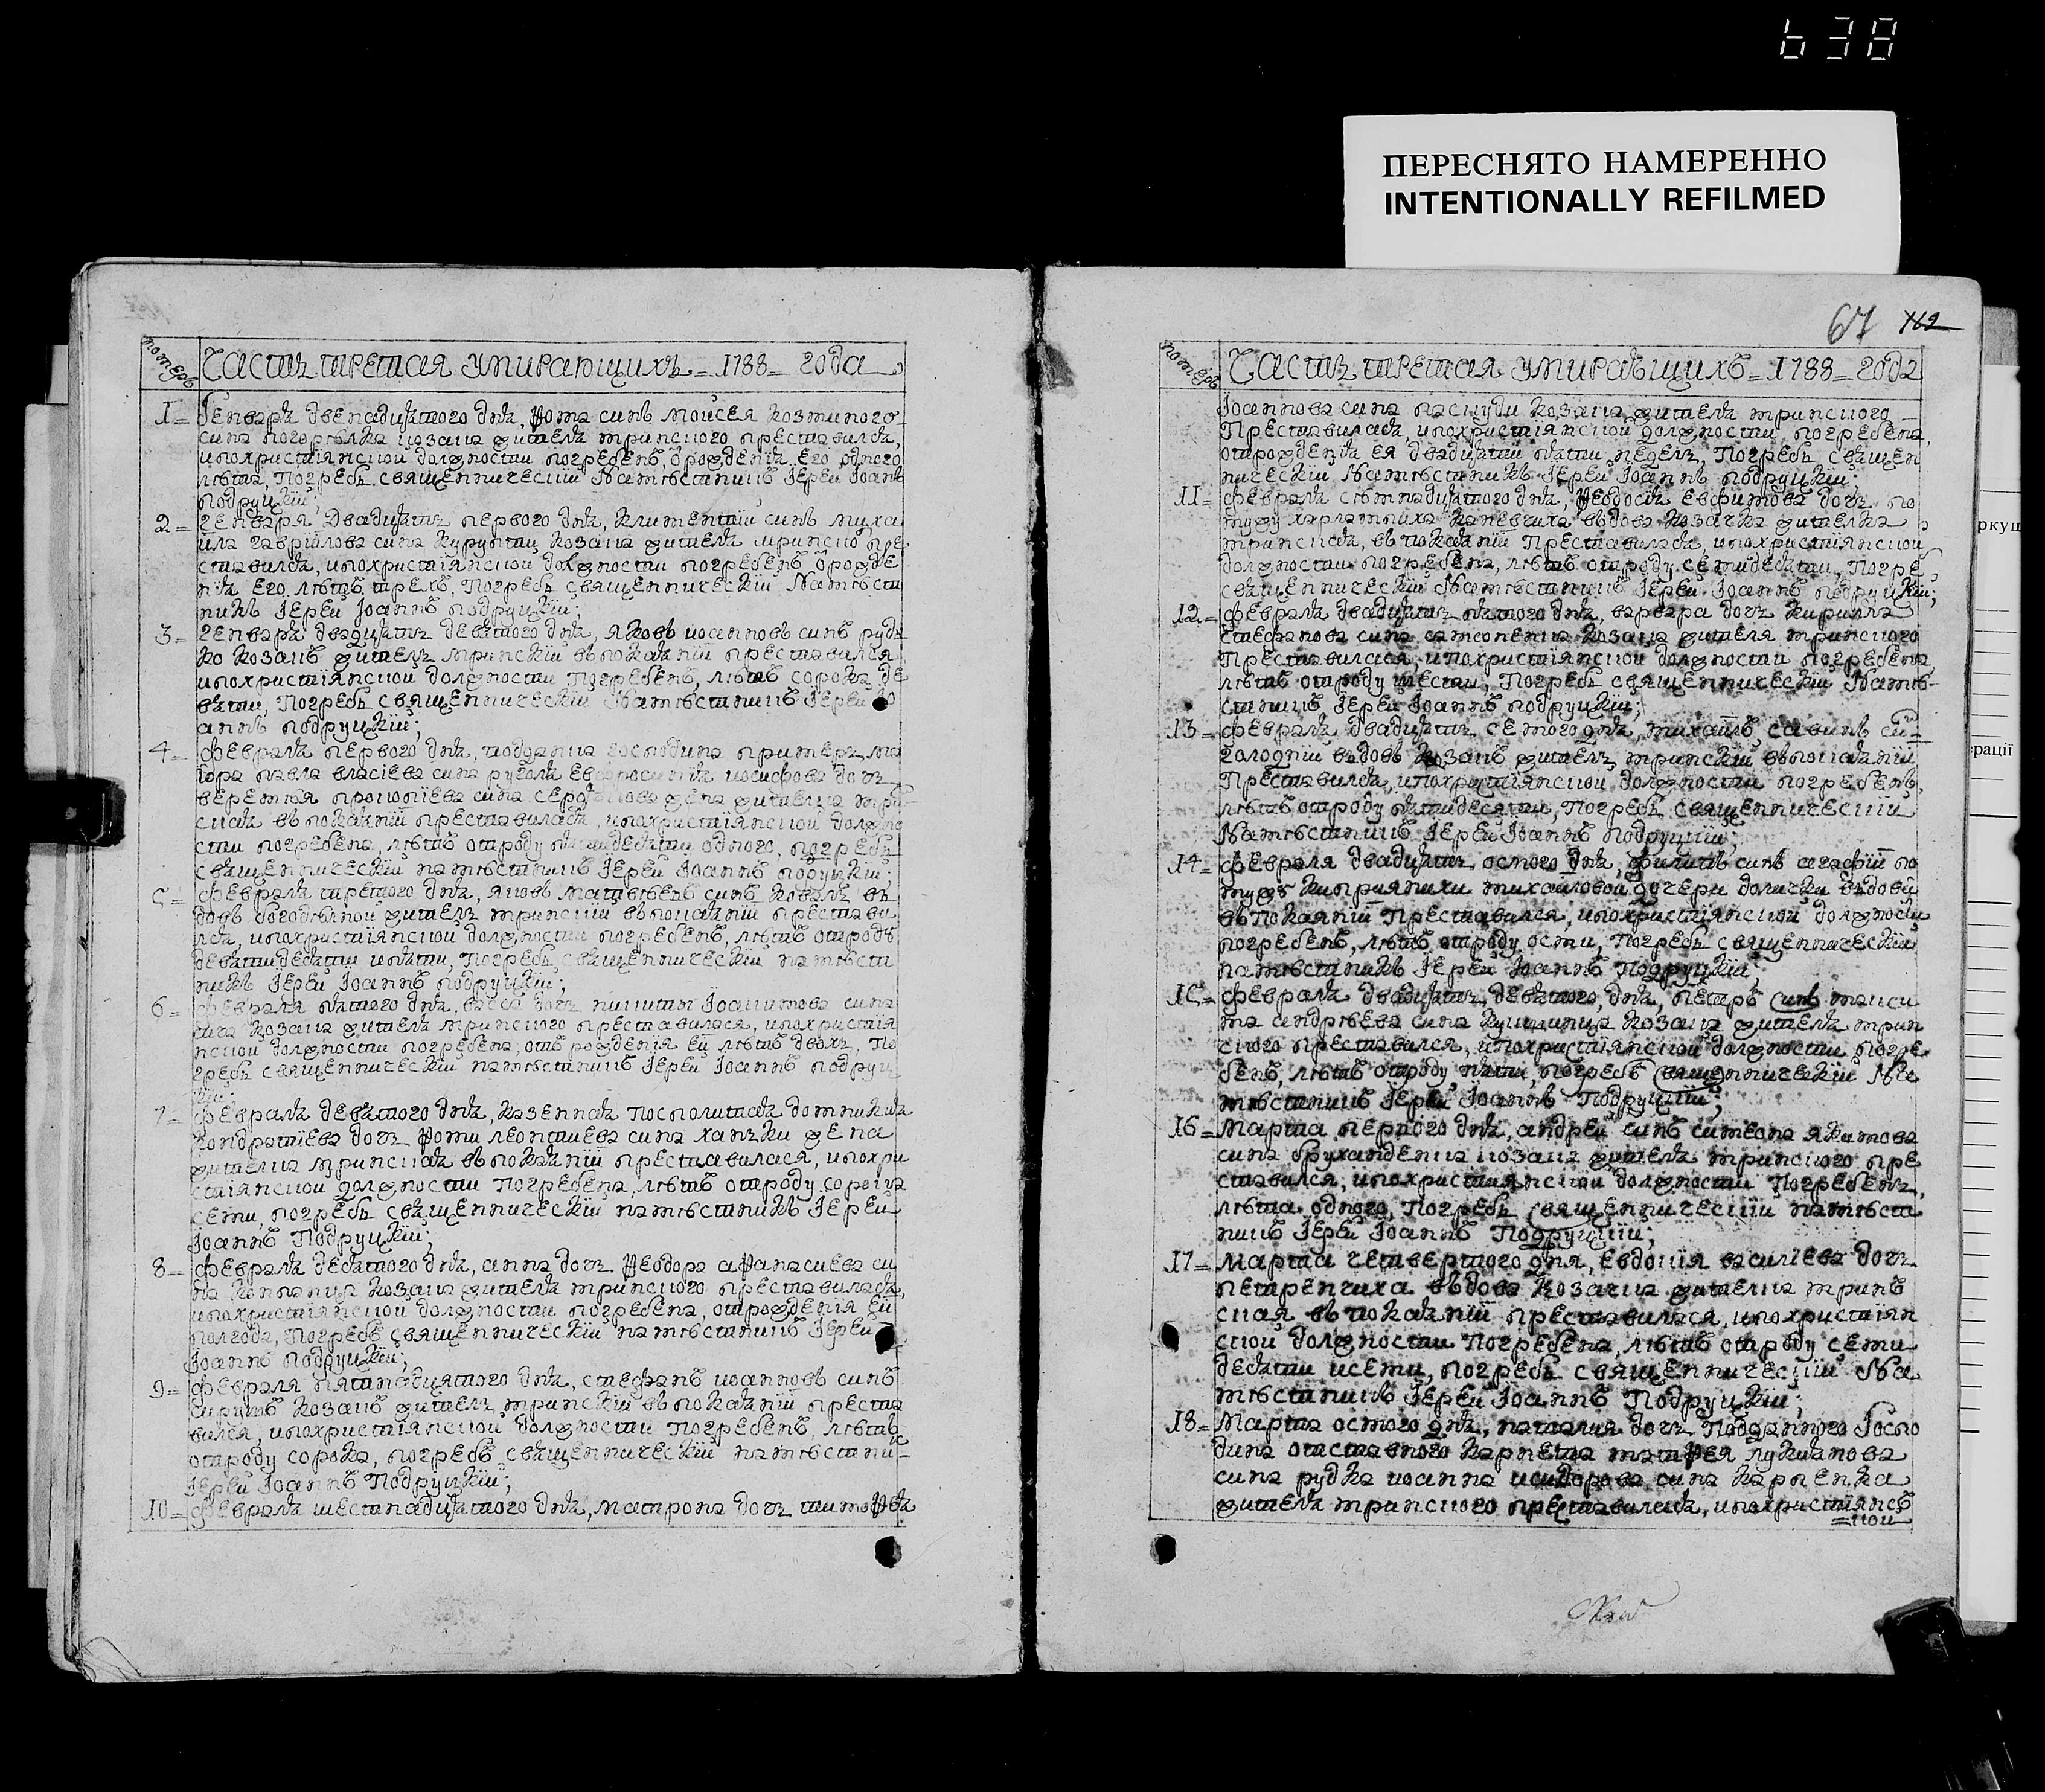 638
ПЕРЕСНЯТО НАМЕРЕННО
INTENTIONALLY REFILMED
номеръ
Часть третая умирающихъ = 1788 = года
1= Генваря двенадцятого дня, Ѳома синъ моисея козминого
сина погорѣлка козака жителя мринского преставился,
ипохристіянской должности погребенъ, ѿрожденія его одного
лѣта, Погребъ священническій Намѣстникъ Іерей Іоаннъ
подруцкій;
2= генваря двадцять первого дня, климентій синъ миха
ила гавріилова сина козака жителя мринско пре
ставился, ипохристіянской должности погребенъ ѿрожде
нія его лѣтъ трехъ, Погребъ священническій Намѣстни
никъ Іерей Іоаннъ подруцкій;
3= генваря двадцять девятого дня, яковъ иоанновъ синъ рудь
ко козакъ житель мринскій впокаяніи преставился
ипохристіянской должности Погребенъ, лѣтъ сорока де
вяти, Погребъ священническій Намѣстникъ Іерей Іо
аннъ подруцкій;
4= февраля первого дня, подданна господина примеръ ма
іора павла власіева сина евфросинія иосифова дочь
веремѣя прокопіева сина жена жителка мри
нская впокаяніи преставилася, ипохристіянской должно
сти погребена, лѣтъ отроду пятидесяти одного, погребъ
священническій намѣстникъ Іерей Іоаннъ подруцкій;
5= февраля третого дня, яковъ матвѣевъ синъ коваль въ
довъ богодѣлной житель мринскій впокаяніи престави
лся, ипохристіянской должности погребенъ, лѣтъ отроду
девятидесяти ипяти, Погребъ священническій намѣстни
никъ Іерей Іоаннъ подруцкій;
6= февраля пятого дня, дочь никити сина
козака жителя мринского преставилася, ипохристія
нской должности погребена, отъ рожденія ей лѣтъ двохъ, По
гребъ священническій намѣстникъ Іерей Іоаннъ подруц
кій;
7= февраля девятого дня, козенная посполитая домникія
кондратіева дочь Ѳоми леонтиева сина жена
жителка мринская впокаяніи преставилася, ипохри
стіянской должности Погребена, лѣтъ отроду сорока
семи, погребъ священническій намѣстникъ Іерей
Іоаннъ Подруцкій;
8= февраля десятого дня, анна дочь Ѳеодора аѲанасиева си
на козака жителя мринского преставилася,
ипохристіянской должности погребена, отрожденія ей
полгода, Погребъ священническій намѣстникъ Іерей
Іоаннъ подруцкій;
9= февраля пятнадцятого дня, стефанъ иоанновъ синъ
козакъ житель мринскій впокаяніи преста
вился, ипохристіянской должности Погребенъ, лѣтъ
отроду сорока, погребъ священническій намѣстник
Іерей Іоаннъ Подруцкій;
10= февраля шестнадцятого дня, матрона дочь тимоѲея
67 162
номеръ
Часть третая умирающихъ = 1788 = года
Іоаннова сина козака жителя мринского
Преставилася, ипохристіянской должности погребена,
отрожденія ея двадцяти пяти недель, Погребъ священ
ническій Намѣстникъ Іерей Іоаннъ подруцкій;
11= февраля семнадцятого дня, Ѳеодосія евфимова дочь по
мужу каневчиха въдова козачка жителка
мринская, въ покаяніи Преставилася, ипохристіянской
должности погребена, лѣтъ отроду семидесяти, Погре
священническій Намѣстникъ Іерей Іоаннъ подруцкій;
12= февраля двадцять пятого дня, варвара дочь кирилла
стефанова сина самсоненка козака жителя мринского
Преставилася ипохристіянской должности погребена
лѣтъ отроду шести, Погребъ священническій Намѣ-
стникъ Іерей Іоаннъ подруцкій;
13= февраля двадцять семого дня, михаилъ савинъ си
голодній въдовъ козакъ житель мринскій впокаяніи
Преставился, ипохристіянской должности погребенъ,
лѣтъ отроду пятидесяти, Погребъ священническій
Намѣстникъ Іерей Іоаннъ Подруцкій;
14= февраля двадцять осмого дня, филипъ синъ агафіи по
мужѣ киприянихи михайловой дочери въдови
въ покаяніи Преставился ипохристіянской должности
погребенъ, лѣтъ отроду осми, Погребъ священническій
намѣстникъ Іерей Іоаннъ Подруцкій;
15= февраля двадцять девятого дня, петръ синъ макси
ма андрѣева сина козака жителя мрин
ского преставился, ипохристіянской должности погре
бенъ, лѣтъ отроду пяти, погребъ священническій На
мѣстникъ Іерей Іоаннъ Подруцкій;
16= Марта первого дня, андрей синъ симеона якимова
сина козака жителя мринского пре
ставился, ипохристиянской должности Погребенъ,
лѣта одного, Погребъ священническій намѣст
никъ Іерей Іоаннъ Подруцкій;
17= Марта четвертого дня, Евдокія василіева дочь
петренчиха въдова козачка жителка мринъ
ская въ покаяніи преставилася, ипохристіян
ской должности Погребена, лѣтъ отроду семи
десяти исеми, погребъ священническій На
мѣстникъ Іерей Іоаннъ Подруцкій;
18= Марта осмого дня, наталия дочь Подданного Госпо
дина отставного матѲея лукянова
сина рудка иоанна исидорова сина карпенка
жителя мринского преставилася, ипохристіянс
=кой